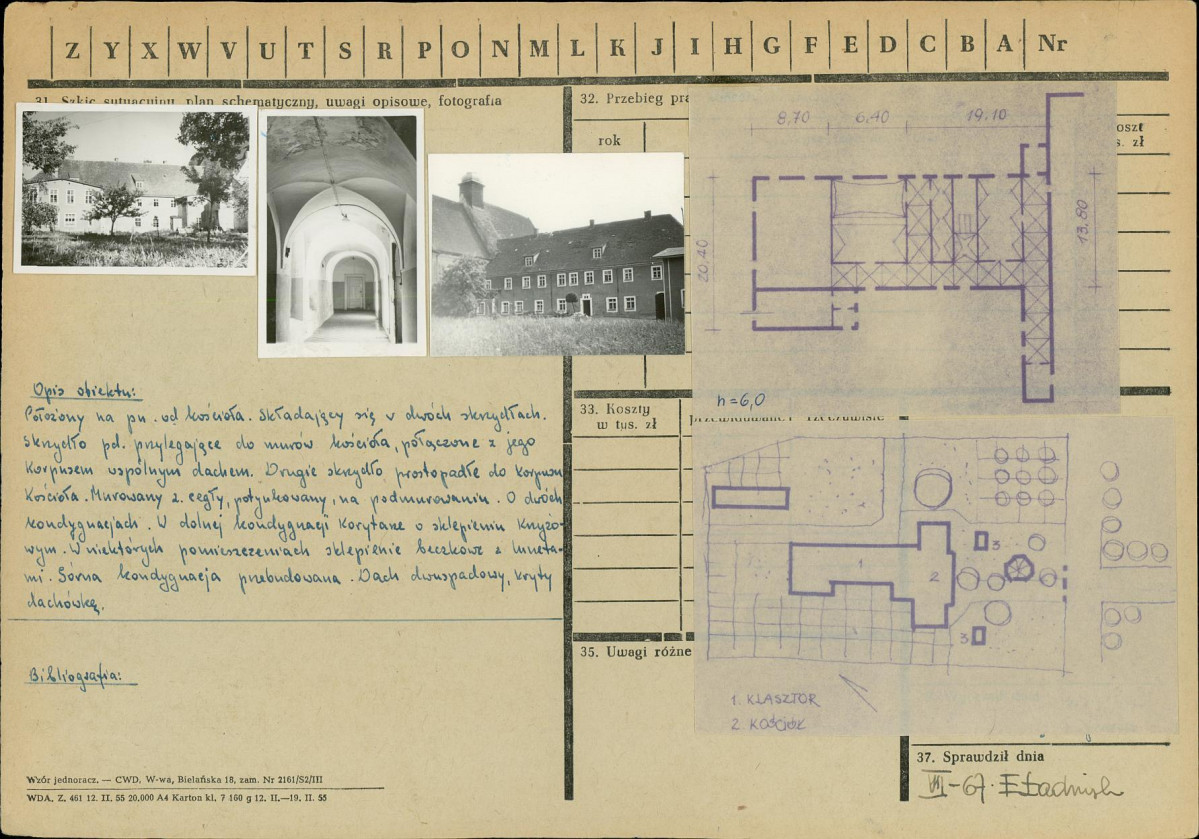 Z Y X W V U T S R P O N M L K J I H G F E D C B A Nr
31. Szkic sytuacyjny, plan schematyczny, uwagi opisowe, fotografia
Opis obiektu:
Położony na pn. od kościoła. Składający się z dwóch skrzydłach.
Skrzydło pd. przylegające do murów kościoła, połączone z jego
korpusem wspólnym dachem. Drugie skrzydło prostopadłe do korpusu
kościoła. Murowany z cegły, potynkowany, na podmurowaniu. O dwóch
kondygnacjach. W dolnej kondygnacji korytarze o sklepieniu krzyżo-
wym. W niektórych pomieszczeniach sklepienie beczkowe z luneta-
mi. Górna kondygnacja przebudowana. Dach dwuspadowy, kryty
dachówką.
Bibliografia:
Wzór jednoracz. — CWD, W-wa, Bielańska 18, zam. Nr 2161/S2/III
WDA. Z. 461 12. II. 55 20.000 A4 Karton kl. 7 160 g 12. II.—19. II. 55
32. Przebieg
rok
zł
8,70 6,40 19.10
20,40
13.80
h=6,0
33. Koszty
w tys. zł
1
2
3
3
1. KLASZTOR
2. KOŚCIÓŁ
35. Uwagi różne
37. Sprawdził dnia
VII-67.